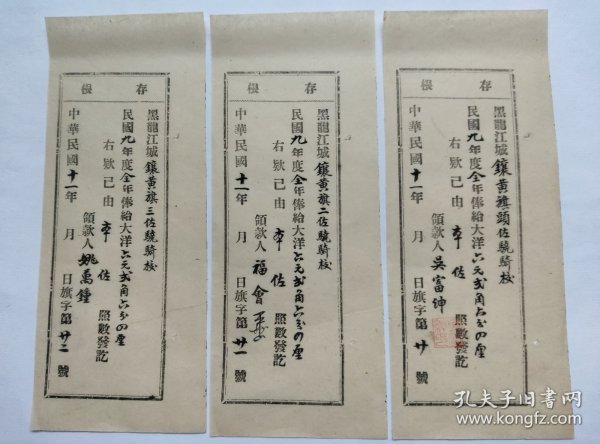 存根
黑龍江城鑲黃旗頭佐驍騎校
民國九年度全年俸給大洋六元弍角六分四厘
右欵已由本佐照數發訖
領款人吳富紳
中華民國十一年 月 日旗字第廿號
存根
黑龍江城鑲黃旗二佐驍騎校
民國九年度全年俸給大洋六元弍角六分四厘
右欵已由本佐照數發訖
領款人福會
中華民國十一年 月 日旗字第廿一號
存根
黑龍江城鑲黃旗三佐驍騎校
民國九年度全年俸給大洋六元弍角六分四厘
右欵已由本佐照數發訖
領款人姚萬鐘
中華民國十一年 月 日旗字第廿二號
孔夫子旧书网
www.kongfz.com